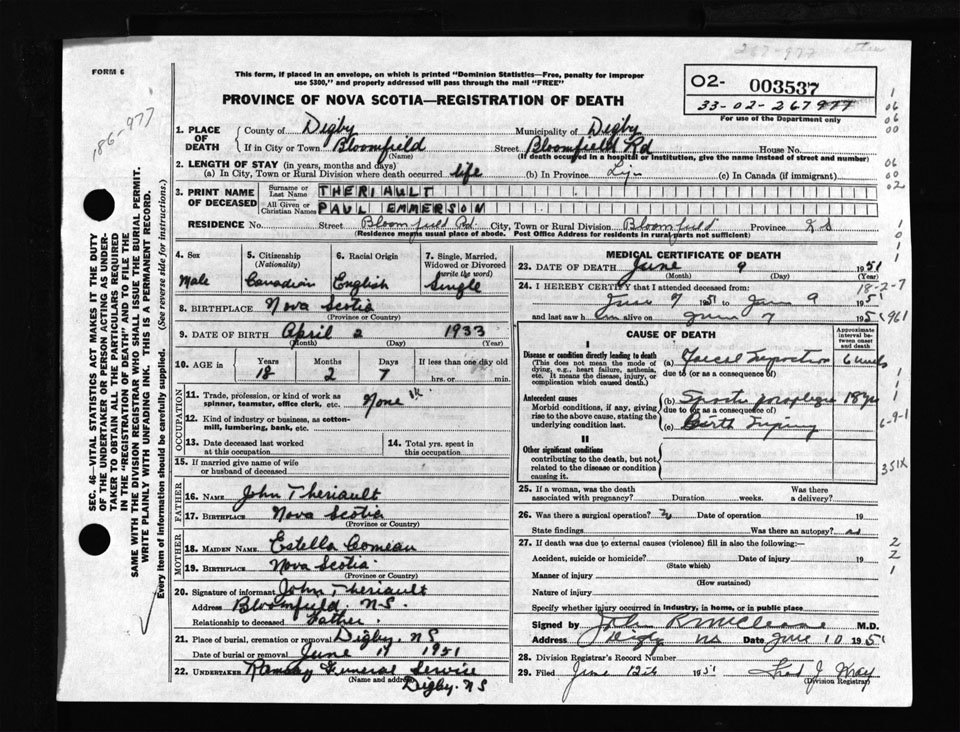 267-977
FORM 6
This form, if placed in an envelope, on which is printed "Dominion Statistics—Free, penalty for improper
use $300," and properly addressed will pass through the mail "FREE"
PROVINCE OF NOVA SCOTIA—REGISTRATION OF DEATH
02- 003537
33-02-267977
For use of the Department only
186-977
SEC. 46—VITAL STATISTICS ACT MAKES IT THE DUTY
OF THE UNDERTAKER OR PERSON ACTING AS UNDER-
TAKER TO OBTAIN ALL THE PARTICULARS REQUIRED
IN THE "REGISTRATION OF DEATH" AND TO FILE THE
SAME WITH THE DIVISION REGISTRAR WHO SHALL ISSUE THE BURIAL PERMIT.
WRITE PLAINLY WITH UNFADING INK. THIS IS A PERMANENT RECORD.
Every item of information should be carefully supplied. (See reverse side for instructions.)
1. PLACE OF DEATH
County of Digby Municipality of Digby
If in City or Town Bloomfield Street Bloomfield Rd House No.
(Name) (If death occurred in a hospital or institution, give the name instead of street and number)
2. LENGTH OF STAY (in years, months and days)
(a) In City, Town or Rural Division where death occurred life (b) In Province (c) In Canada (if immigrant)
3. PRINT NAME OF DECEASED
Surname or Last Name THERIAULT
All Given or Christian Names PAUL EMMERSON
RESIDENCE No. Street Bloomfield Rd City, Town or Rural Division Bloomfield Province N S
(Residence means usual place of abode. Post Office Address for residents in rural parts not sufficient)
4. Sex
Male
5. Citizenship
(Nationality)
Canadian
6. Racial Origin
English
7. Single, Married,
Widowed or Divorced
(write the word)
Single
8. BIRTHPLACE Nova Scotia
(Province or Country)
9. DATE OF BIRTH April 2 1933
(Month) (Day) (Year)
10. AGE in Years Months Days If less than one day old
18 2 7 hrs. or min.
OCCUPATION
11. Trade, profession, or kind of work as
spinner, teamster, office clerk, etc. None
12. Kind of industry or business, as cotton-
mill, lumbering, bank, etc.
13. Date deceased last worked
at this occupation
14. Total yrs. spent in
this occupation
15. If married give name of wife
or husband of deceased
FATHER
16. NAME John Theriault
17. BIRTHPLACE Nova Scotia
(Province or Country)
MOTHER
18. MAIDEN NAME Estella Comeau
19. BIRTHPLACE Nova Scotia
(Province or Country)
20. Signature of informant John Theriault
Address Bloomfield N.S.
Relationship to deceased Father
21. Place of burial, cremation or removal Digby. NS
Date of burial or removal June 11 1951
22. UNDERTAKER Ramsay Funeral Service
(Name and address)
Digby. NS
MEDICAL CERTIFICATE OF DEATH
23. DATE OF DEATH June 9 1951
(Month) (Day) (Year)
24. I HEREBY CERTIFY that I attended deceased from: 18-2-7
June 7 1951 to June 9 1951
and last saw him alive on June 7 195
CAUSE OF DEATH
Approximate interval between onset and death
I
Disease or condition directly leading to death
(This does not mean the mode of
dying, e.g., heart failure, asthenia,
etc. It means the disease, injury, or
complication which caused death.)
(a) Faecal Impaction 6 weeks
due to (or as a consequence of)
Antecedent causes
Morbid conditions, if any, giving
rise to the above cause, stating the
underlying condition last.
(b) Spastic paraplegia 18 yrs
due to (or as a consequence of)
(c) Birth Injury
II
Other significant conditions
contributing to the death, but not
related to the disease or condition
causing it.
351X
25. If a woman, was the death
associated with pregnancy? Duration weeks. Was there
a delivery?
26. Was there a surgical operation? Date of operation 19
State findings Was there an autopsy? no
27. If death was due to external causes (violence) fill in also the following:—
Accident, suicide or homicide? Date of injury 19
(State which)
Manner of injury
(How sustained)
Nature of injury
Specify whether injury occurred in industry, in home, or in public place
Signed by John M.D.
Address Digby NS Date June 10 1951
28. Division Registrar's Record Number
29. Filed June 12th 1951 Fred J.
(Division Registrar)